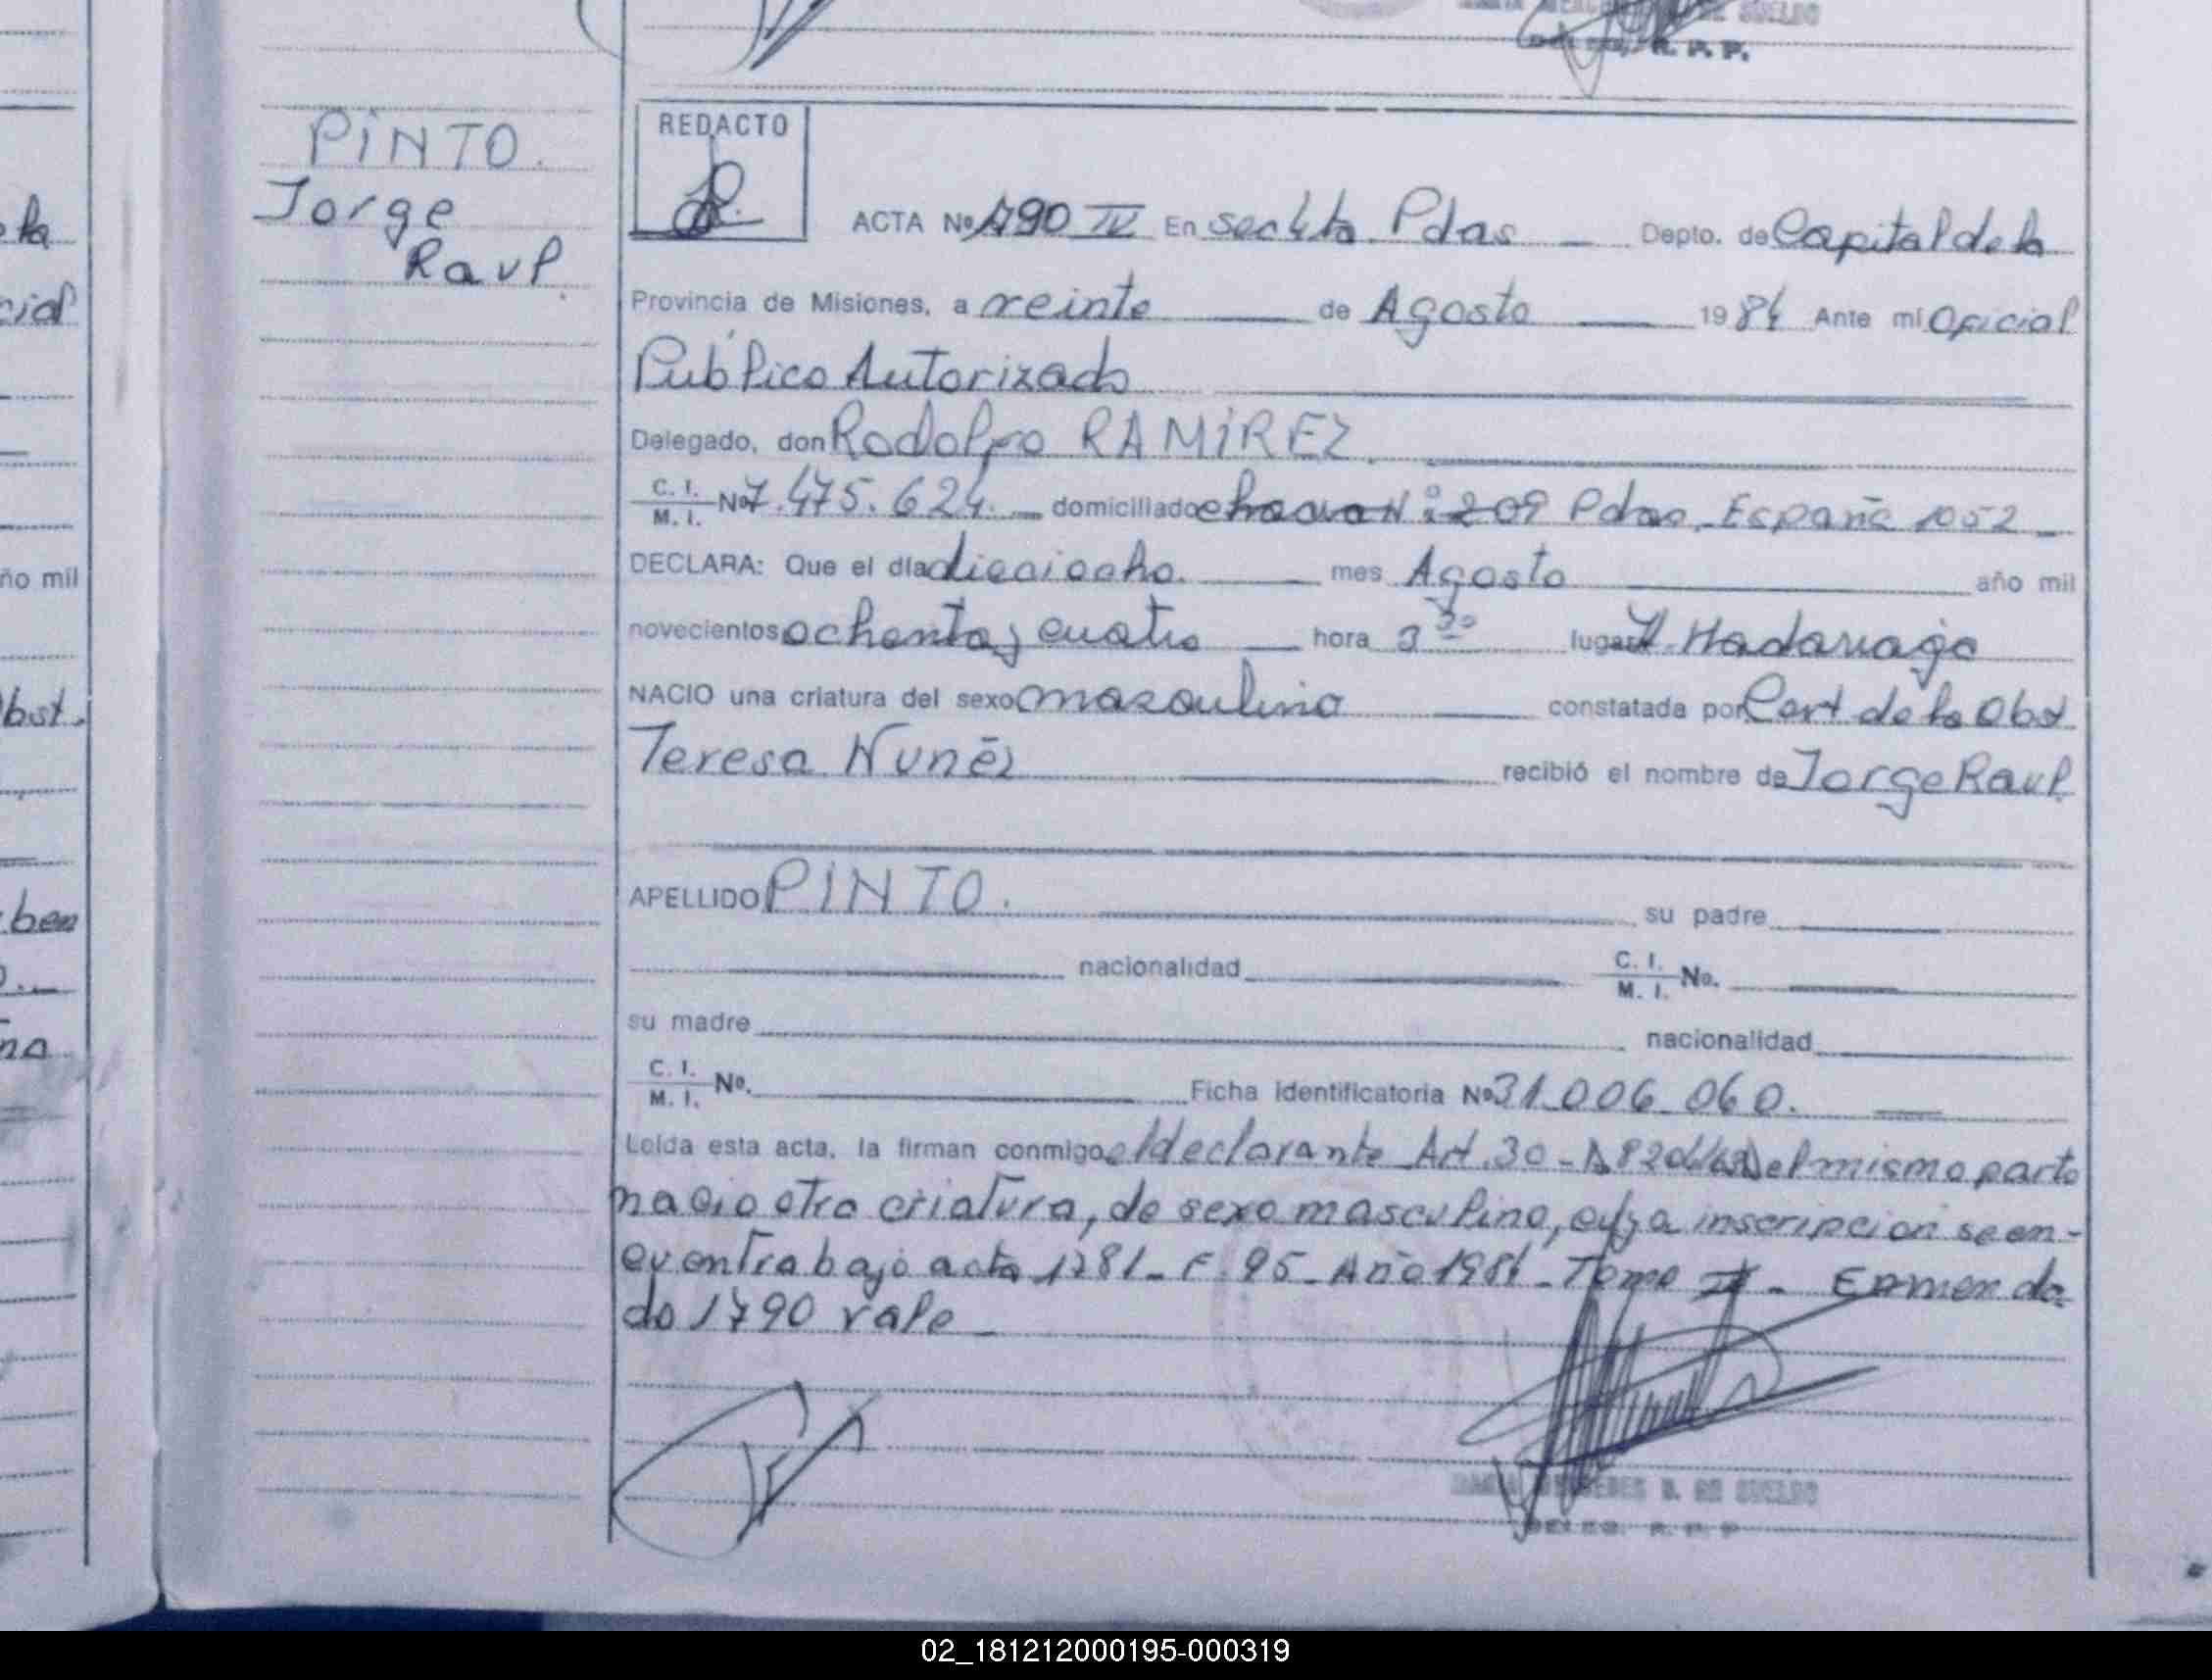 DE SUELDO
R. P. P.
PINTO.
Jorge
Raul.
REDACTO
ACTA Nº 1790 IV En secc 4ta Pdas Depto. de Capital de la
Provincia de Misiones, a veinte de Agosto 1984 Ante mi Oficial
Público Autorizado
Delegado, don Rodolfo RAMIREZ.
C. I. / M. I. Nº 7.475.624. domiciliado chacra Nº 209 Pdas. España 1052
DECLARA: Que el día dieciocho. mes Agosto año mil
novecientos ochenta y cuatro hora 3 30 lugar H. Madariaga
NACIO una criatura del sexo masculino constatada por Cert de la Obst
Teresa Nuñez recibió el nombre de Jorge Raul.
APELLIDO PINTO. su padre
nacionalidad C. I. / M. I. No.
su madre nacionalidad
C. I. / M. I. No. Ficha Identificatoria Nº 31.006.060.
Leída esta acta, la firman conmigo el declarante Art. 30 - Del mismo parto
nacio otra criatura, de sexo masculino, cuya inscripcion se en-
cuentra bajo acta 1781 - F. 95 - Año 1984 - Tomo IV - Enmenda
do 1790 vale
DE SUELDO
ño mil
bst.
02_181212000195-000319